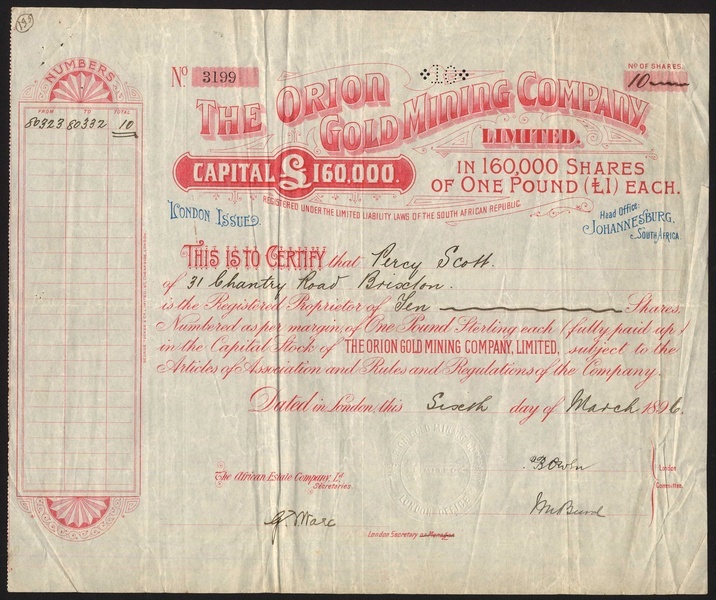 199
NUMBERS
FROM TO TOTAL
80323 80332 10
No. 3199
10
No OF SHARES.
10
THE ORION
GOLD MINING COMPANY,
LIMITED.
CAPITAL £160,000.
IN 160,000 SHARES
OF ONE POUND (£1) EACH.
REGISTERED UNDER THE LIMITED LIABILITY LAWS OF THE SOUTH AFRICAN REPUBLIC
LONDON ISSUED.
Head Office:
JOHANNESBURG,
SOUTH AFRICA.
THIS IS TO CERTIFY that Percy Scott.
of 31 Chantry Road Brixton.
is the Registered Proprietor of Ten Shares,
Numbered as per margin, of One Pound Sterling each (fully paid up)
in the Capital Stock of THE ORION GOLD MINING COMPANY, LIMITED, subject to the
Articles of Association and Rules and Regulations of the Company.
Dated in London, this Sixth day of March 1896.
The African Estate Company, Ld
Secretaries.
London
Committee.
London Secretary or Manager